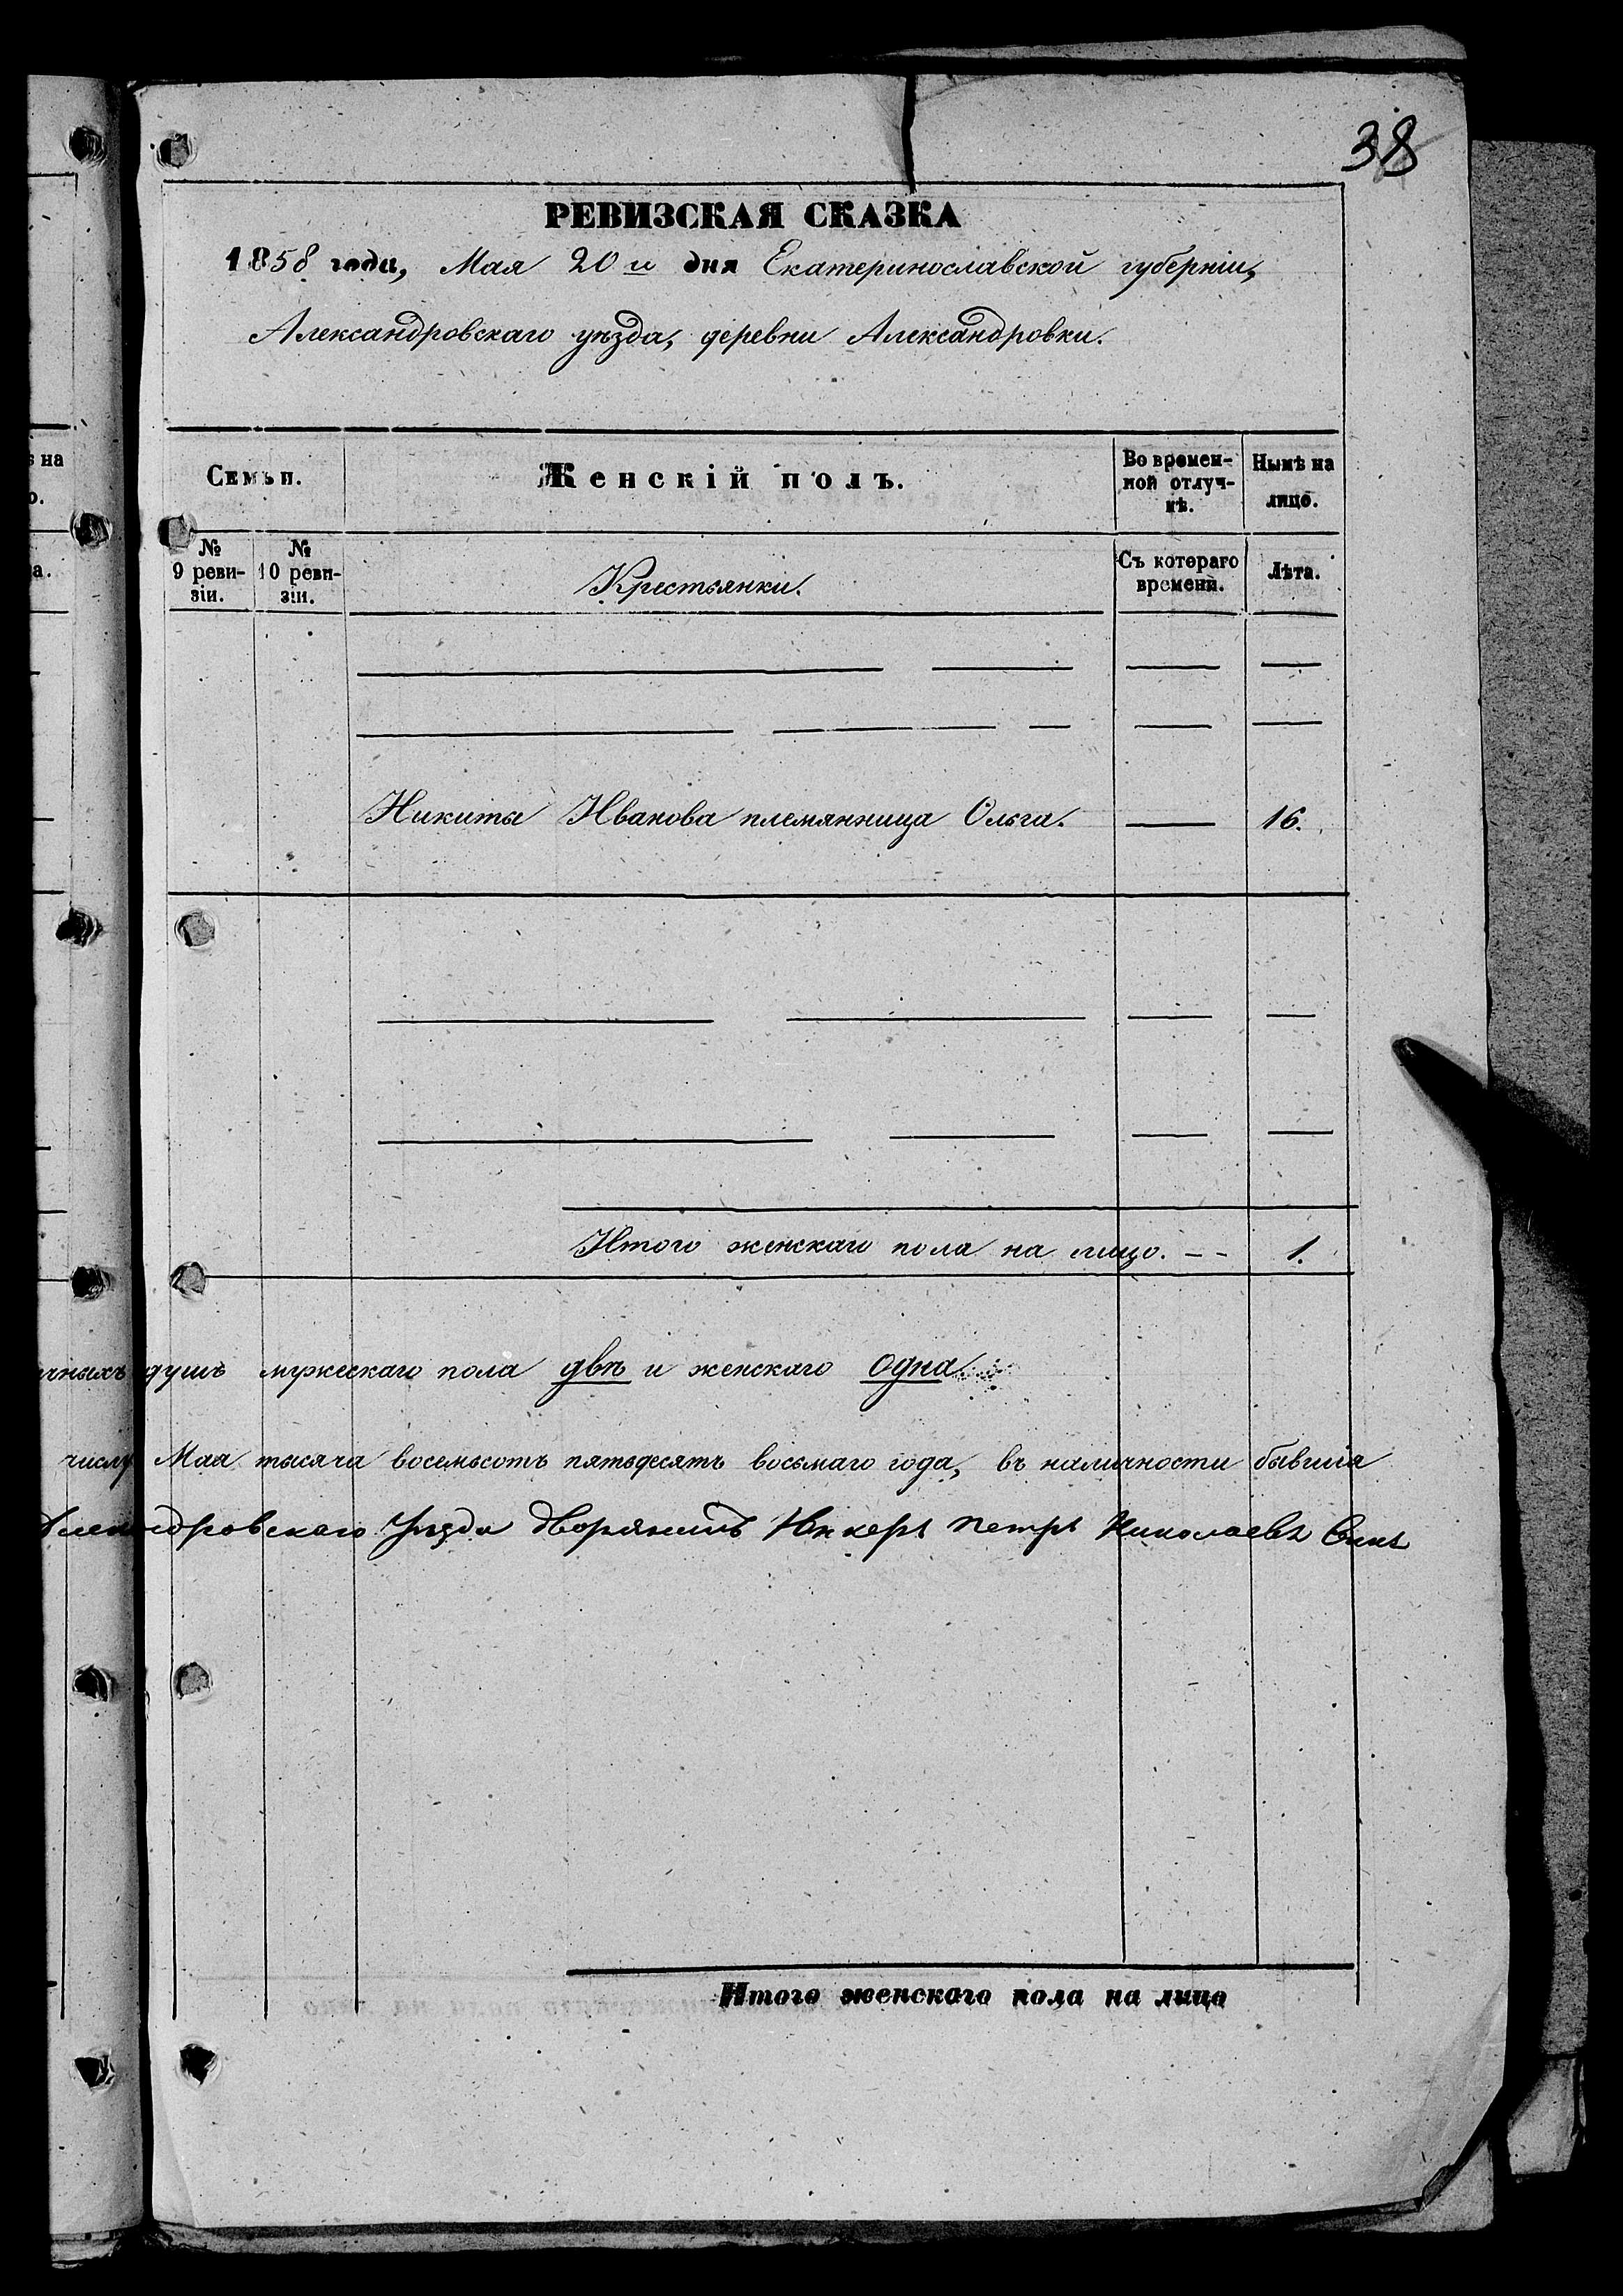 38
РЕВИЗСКАЯ СКАЗКА
1858 года, Мая 20 и дня Екатеринославской губерніи,
Александровскаго уѣзда, деревни Александровки.
ѣ на
о.
Семьи.
Женскій полъ.
Во времен-
ной отлуч-
кѣ.
Нынѣ на
лицо.
а.
№
9 реви-
зіи.
№
10 реви-
зіи.
Крестьянки.
Съ котораго
времени.
Лѣта.
Никиты Иванова племянница Ольга. 16.
Итого женскаго пола на лицо. - - 1.
чныхъ душъ мужескаго пола двѣ и женскаго одна.
числу Мая тысяча восемьсотъ пятьдесятъ восьмаго года, въ наличности бывшія
Александровскаго Уѣзда Дворянинъ Юнкеръ Петръ Николаевъ Сынъ
Итого женскаго пола на лицо